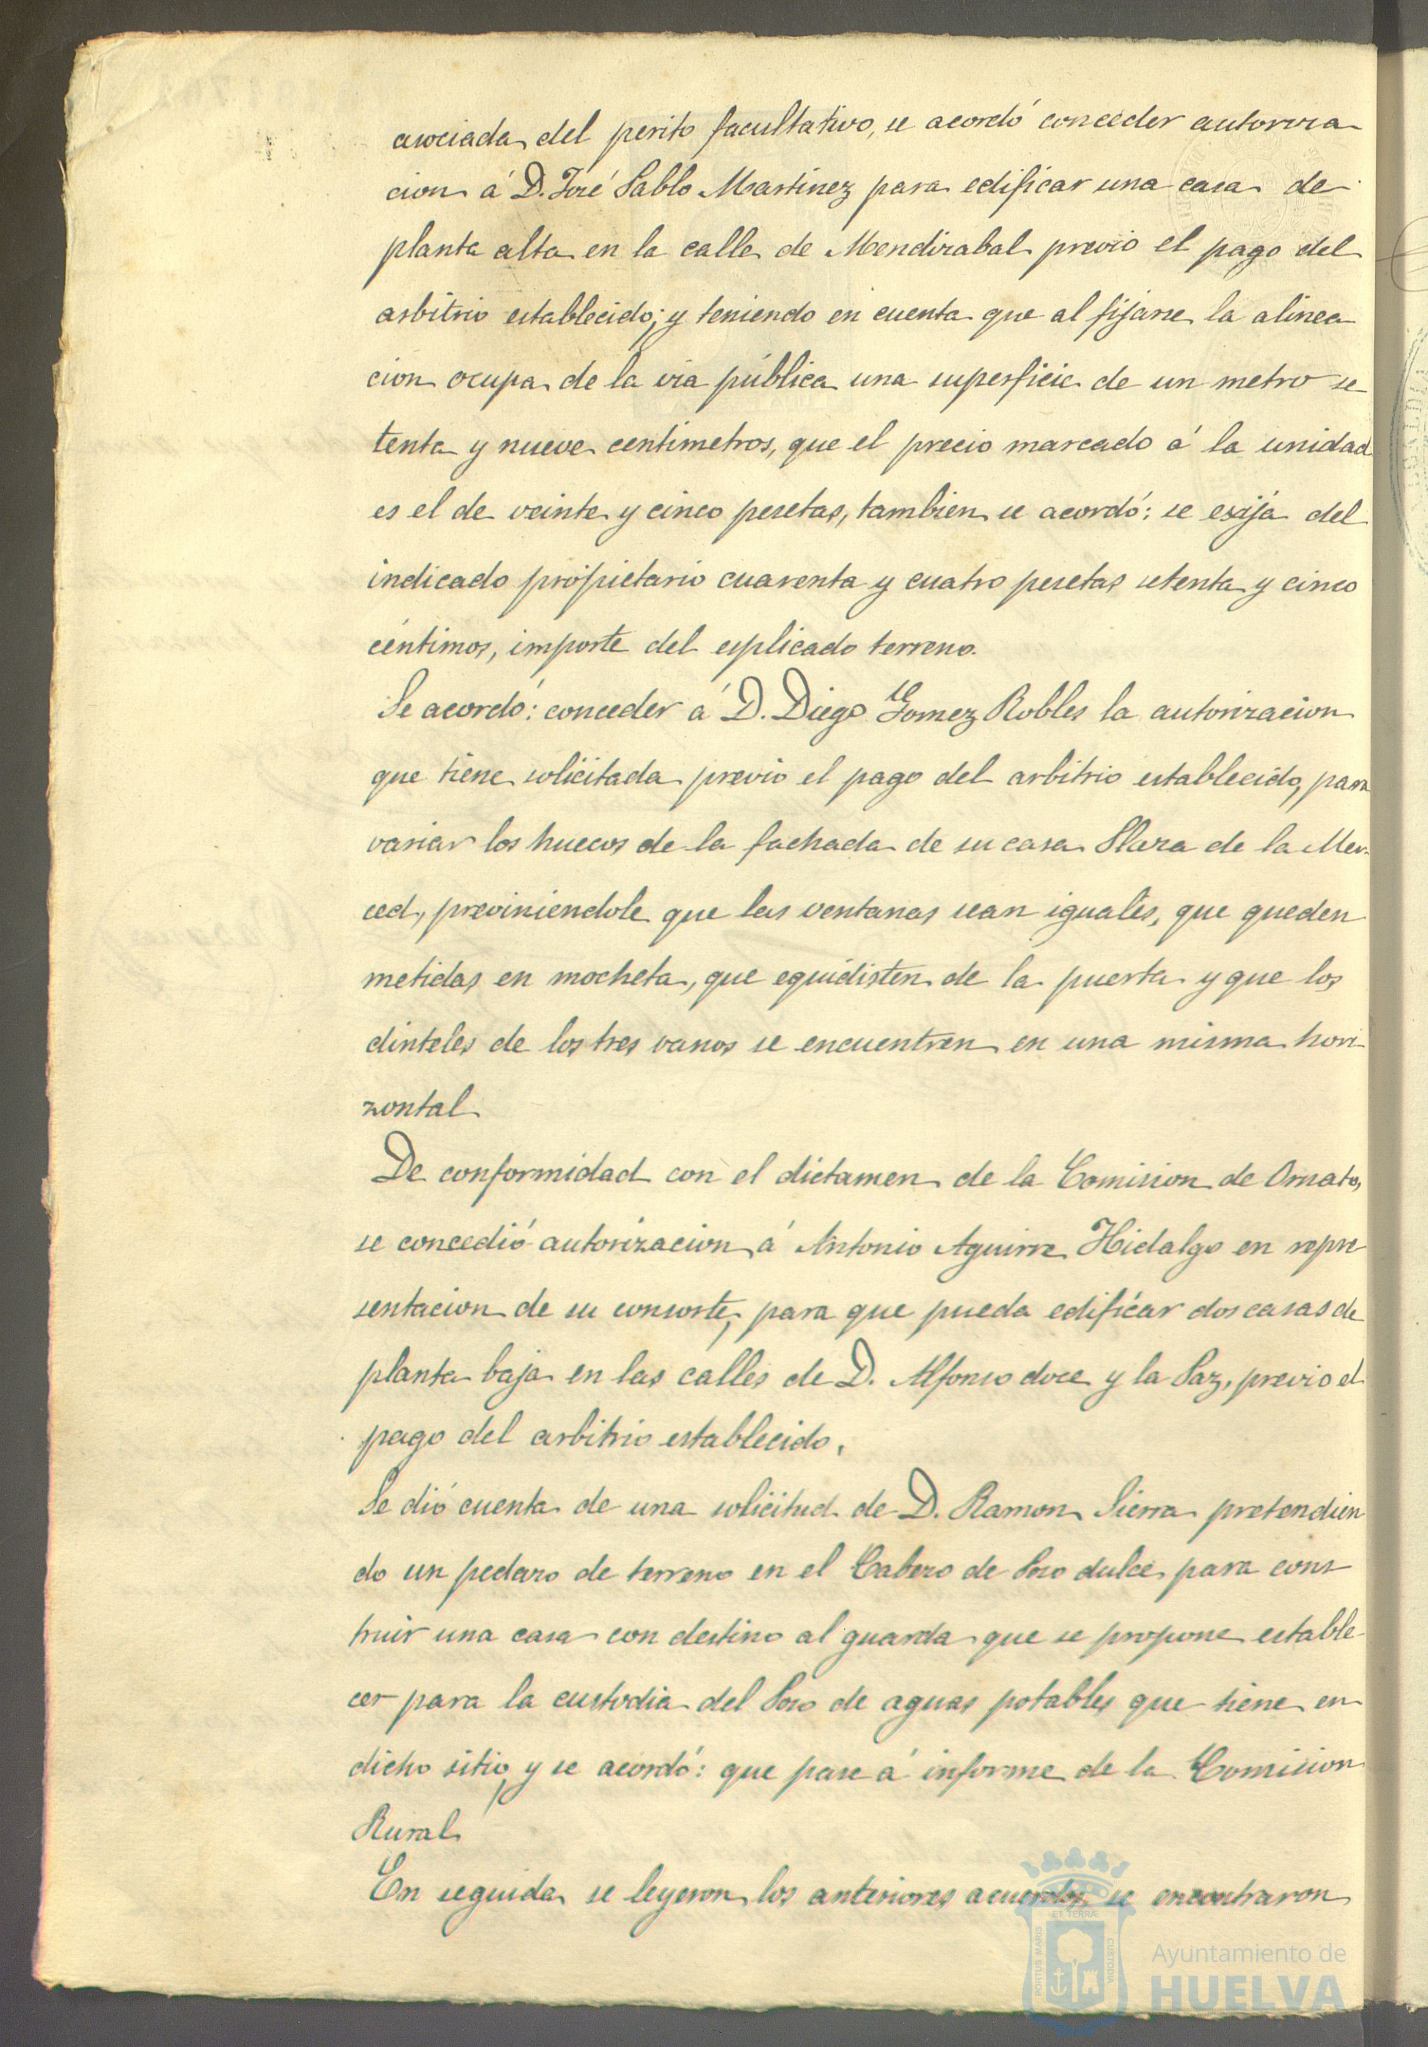 asociada del perito facultativo, se acordó conceder autoriza
cion á D. José Pablo Martinez para edificar una casa de
planta alta en la calle de Mendizabal previo el pago del
arbitrio establecido; y teniendo en cuenta que al fijarse la alinea
cion ocupa de la via pública una superficie de un metro se
tenta y nueve centímetros, que el precio marcado á la unidad
es el de veinte y cinco pesetas, tambien se acordó: se exija del
indicado propietario cuarenta y cuatro pesetas setenta y cinco
céntimos, importe del esplicado terreno.
Se acordó: conceder á D. Diego Gomez Robles la autorizacion
que tiene solicitada previo el pago del arbitrio establecido, para
variar los huecos de la fachada de su casa Plaza de la Mer-
ced, previniendole que las ventanas sean iguales, que queden
metidas en mocheta, que equidisten de la puerta y que los
dinteles de los tres vanos se encuentren en una misma hori-
zontal
De conformidad con el dictamen de la Comision de Ornato,
se concedió autorizacion á Antonio Aguirre Hidalgo en repre
sentacion de su consorte, para que pueda edificar dos casas de
planta baja en las calles de D. Alfonso doce y la Paz, previo el
pago del arbitrio establecido.
Se dió cuenta de una solicitud de D. Ramon Sierra pretendien
do un pedazo de terreno en el Cabezo de Pozo dulce para cons-
truir una casa con destino al guarda que se propone estable-
cer para la custodia del Pozo de aguas potables que tiene en
dicho sitio, y se acordó: que pase á informe de la Comision
Rural
En seguida se leyeron los anteriores acuerdos, se encontraron
PORTUS MARIS
ET TERRÆ
CUSTODIA
Ayuntamiento de
HUELVA